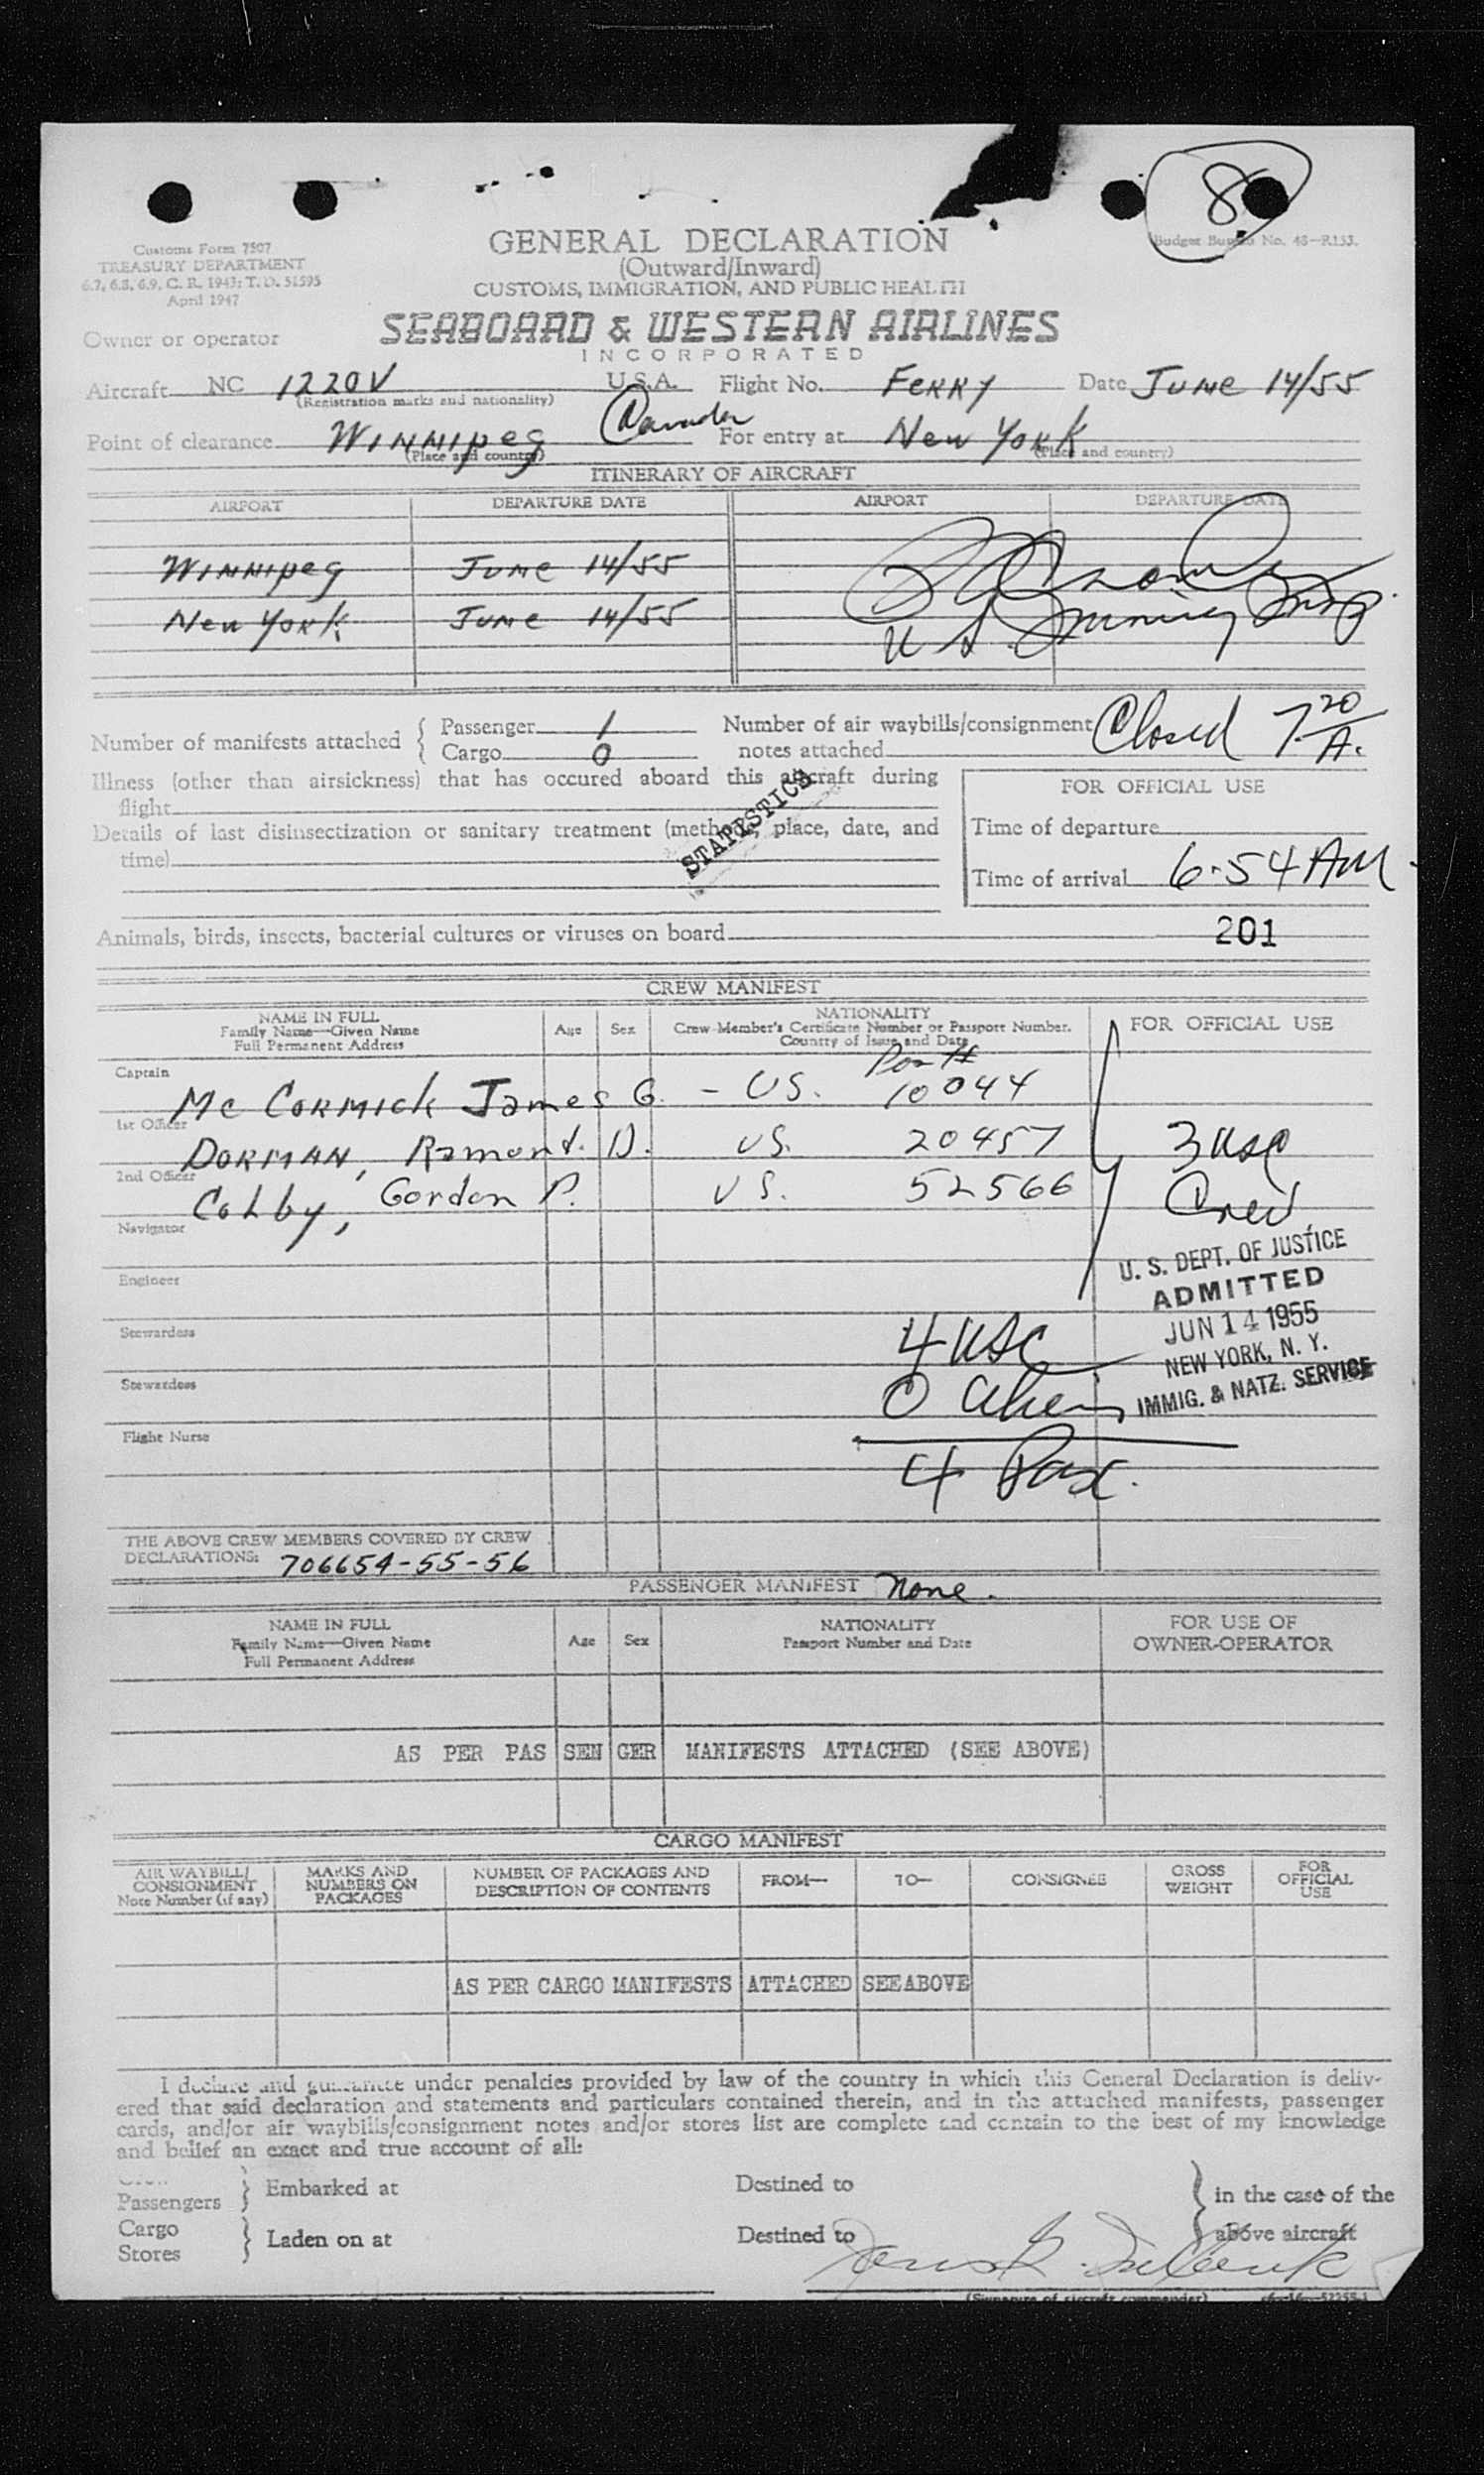 8
Customs Form 7507
TREASURY DEPARTMENT
6.7, 6.8, 6.9, C. R. 1943; T. D. 51595
April 1947
GENERAL DECLARATION
(Outward/Inward)
CUSTOMS, IMMIGRATION, AND PUBLIC HEALTH
Budget Bureau No. 48-R153.
Owner or operator
SEABOARD & WESTERN AIRLINES
INCORPORATED
Aircraft NC 1220V U.S.A. Flight No. Ferry Date June 14/55
(Registration marks and nationality)
Point of clearance Winnipeg Canada For entry at New York
(Place and country) (Place and country)
ITINERARY OF AIRCRAFT
AIRPORT DEPARTURE DATE AIRPORT DEPARTURE DATE
Winnipeg June 14/55
New York June 14/55
U.S. Immig Insp.
Number of manifests attached { Passenger 1
Cargo 0
Number of air waybills/consignment
notes attached
Closed 7 20 A.
Illness (other than airsickness) that has occured aboard this aircraft during
flight
Details of last disinsectization or sanitary treatment (method, place, date, and
time)
STATISTICS
FOR OFFICIAL USE
Time of departure
Time of arrival 6.54 AM
Animals, birds, insects, bacterial cultures or viruses on board
201
CREW MANIFEST
NAME IN FULL
Family Name—Given Name
Full Permanent Address
Age Sex
NATIONALITY
Crew Member's Certificate Number or Passport Number.
Country of Issue and Date
FOR OFFICIAL USE
Captain
Mc Cormick James G. - US. 10044
1st Officer
Dorman, Ramon D. US. 20457
2nd Officer
Colby, Gordon P. US. 52566
3 USC
Crew
Navigator
Engineer
Stewardess
Stewardess
Flight Nurse
U. S. DEPT. OF JUSTICE
ADMITTED
JUN 14 1955
NEW YORK, N. Y.
IMMIG. & NATZ. SERVICE
4 USC
0 Aliens
4 Pax.
THE ABOVE CREW MEMBERS COVERED BY CREW
DECLARATIONS: 706654-55-56
PASSENGER MANIFEST None.
NAME IN FULL
Family Name—Given Name
Full Permanent Address
Age Sex
NATIONALITY
Passport Number and Date
FOR USE OF
OWNER-OPERATOR
AS PER PAS SEN GER MANIFESTS ATTACHED (SEE ABOVE)
CARGO MANIFEST
AIR WAYBILL/
CONSIGNMENT
Note Number (if any)
MARKS AND
NUMBERS ON
PACKAGES
NUMBER OF PACKAGES AND
DESCRIPTION OF CONTENTS
FROM—
TO—
CONSIGNEE
GROSS
WEIGHT
FOR
OFFICIAL
USE
AS PER CARGO MANIFESTS ATTACHED SEE ABOVE
I declare and guarantee under penalties provided by law of the country in which this General Declaration is deliv-
ered that said declaration and statements and particulars contained therein, and in the attached manifests, passenger
cards, and/or air waybills/consignment notes and/or stores list are complete and contain to the best of my knowledge
and belief an exact and true account of all:
Passengers } Embarked at Destined to } in the case of the
Cargo
Stores } Laden on at Destined to above aircraft
(Signature of aircraft commander)